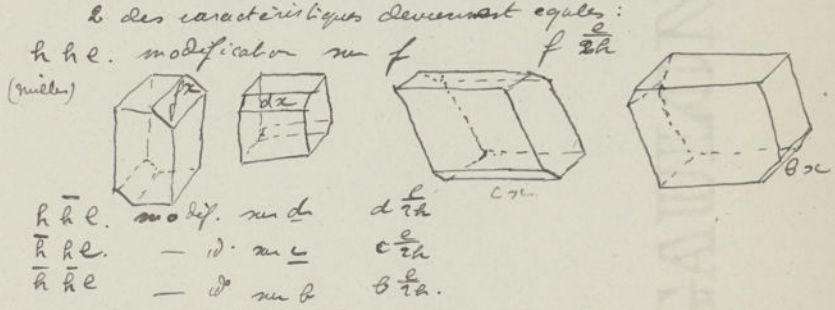 2 des caractéristiques deviennent egales :
h h e. modification sur f f e/2h
(nulles)
fx dx
c x
b x
h h̄ e. modif. sur d d e/2h
h̄ h e. — id. sur c c e/2h
h̄ h̄ e — id sur b b e/2h.